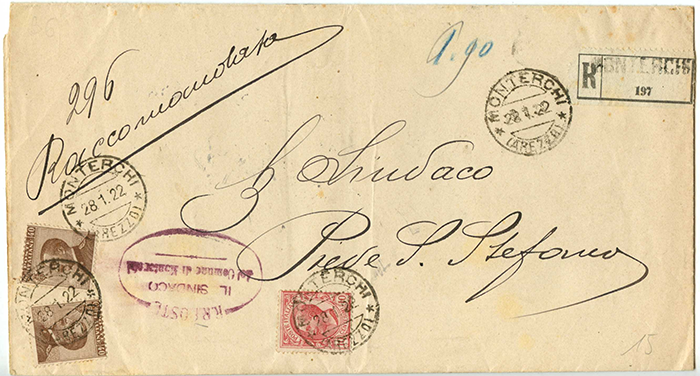 296
Raccomandata
R MONTERCHI
197
MONTERCHI
28.1.22
(AREZZO)
Sindaco
Pieve S. Stefano
MONTERCHI
28.1.22
(AREZZO)
R. POSTE
IL SINDACO
del Comune di Monterchi
MONTERCHI
28.1.22
MONTERCHI
15